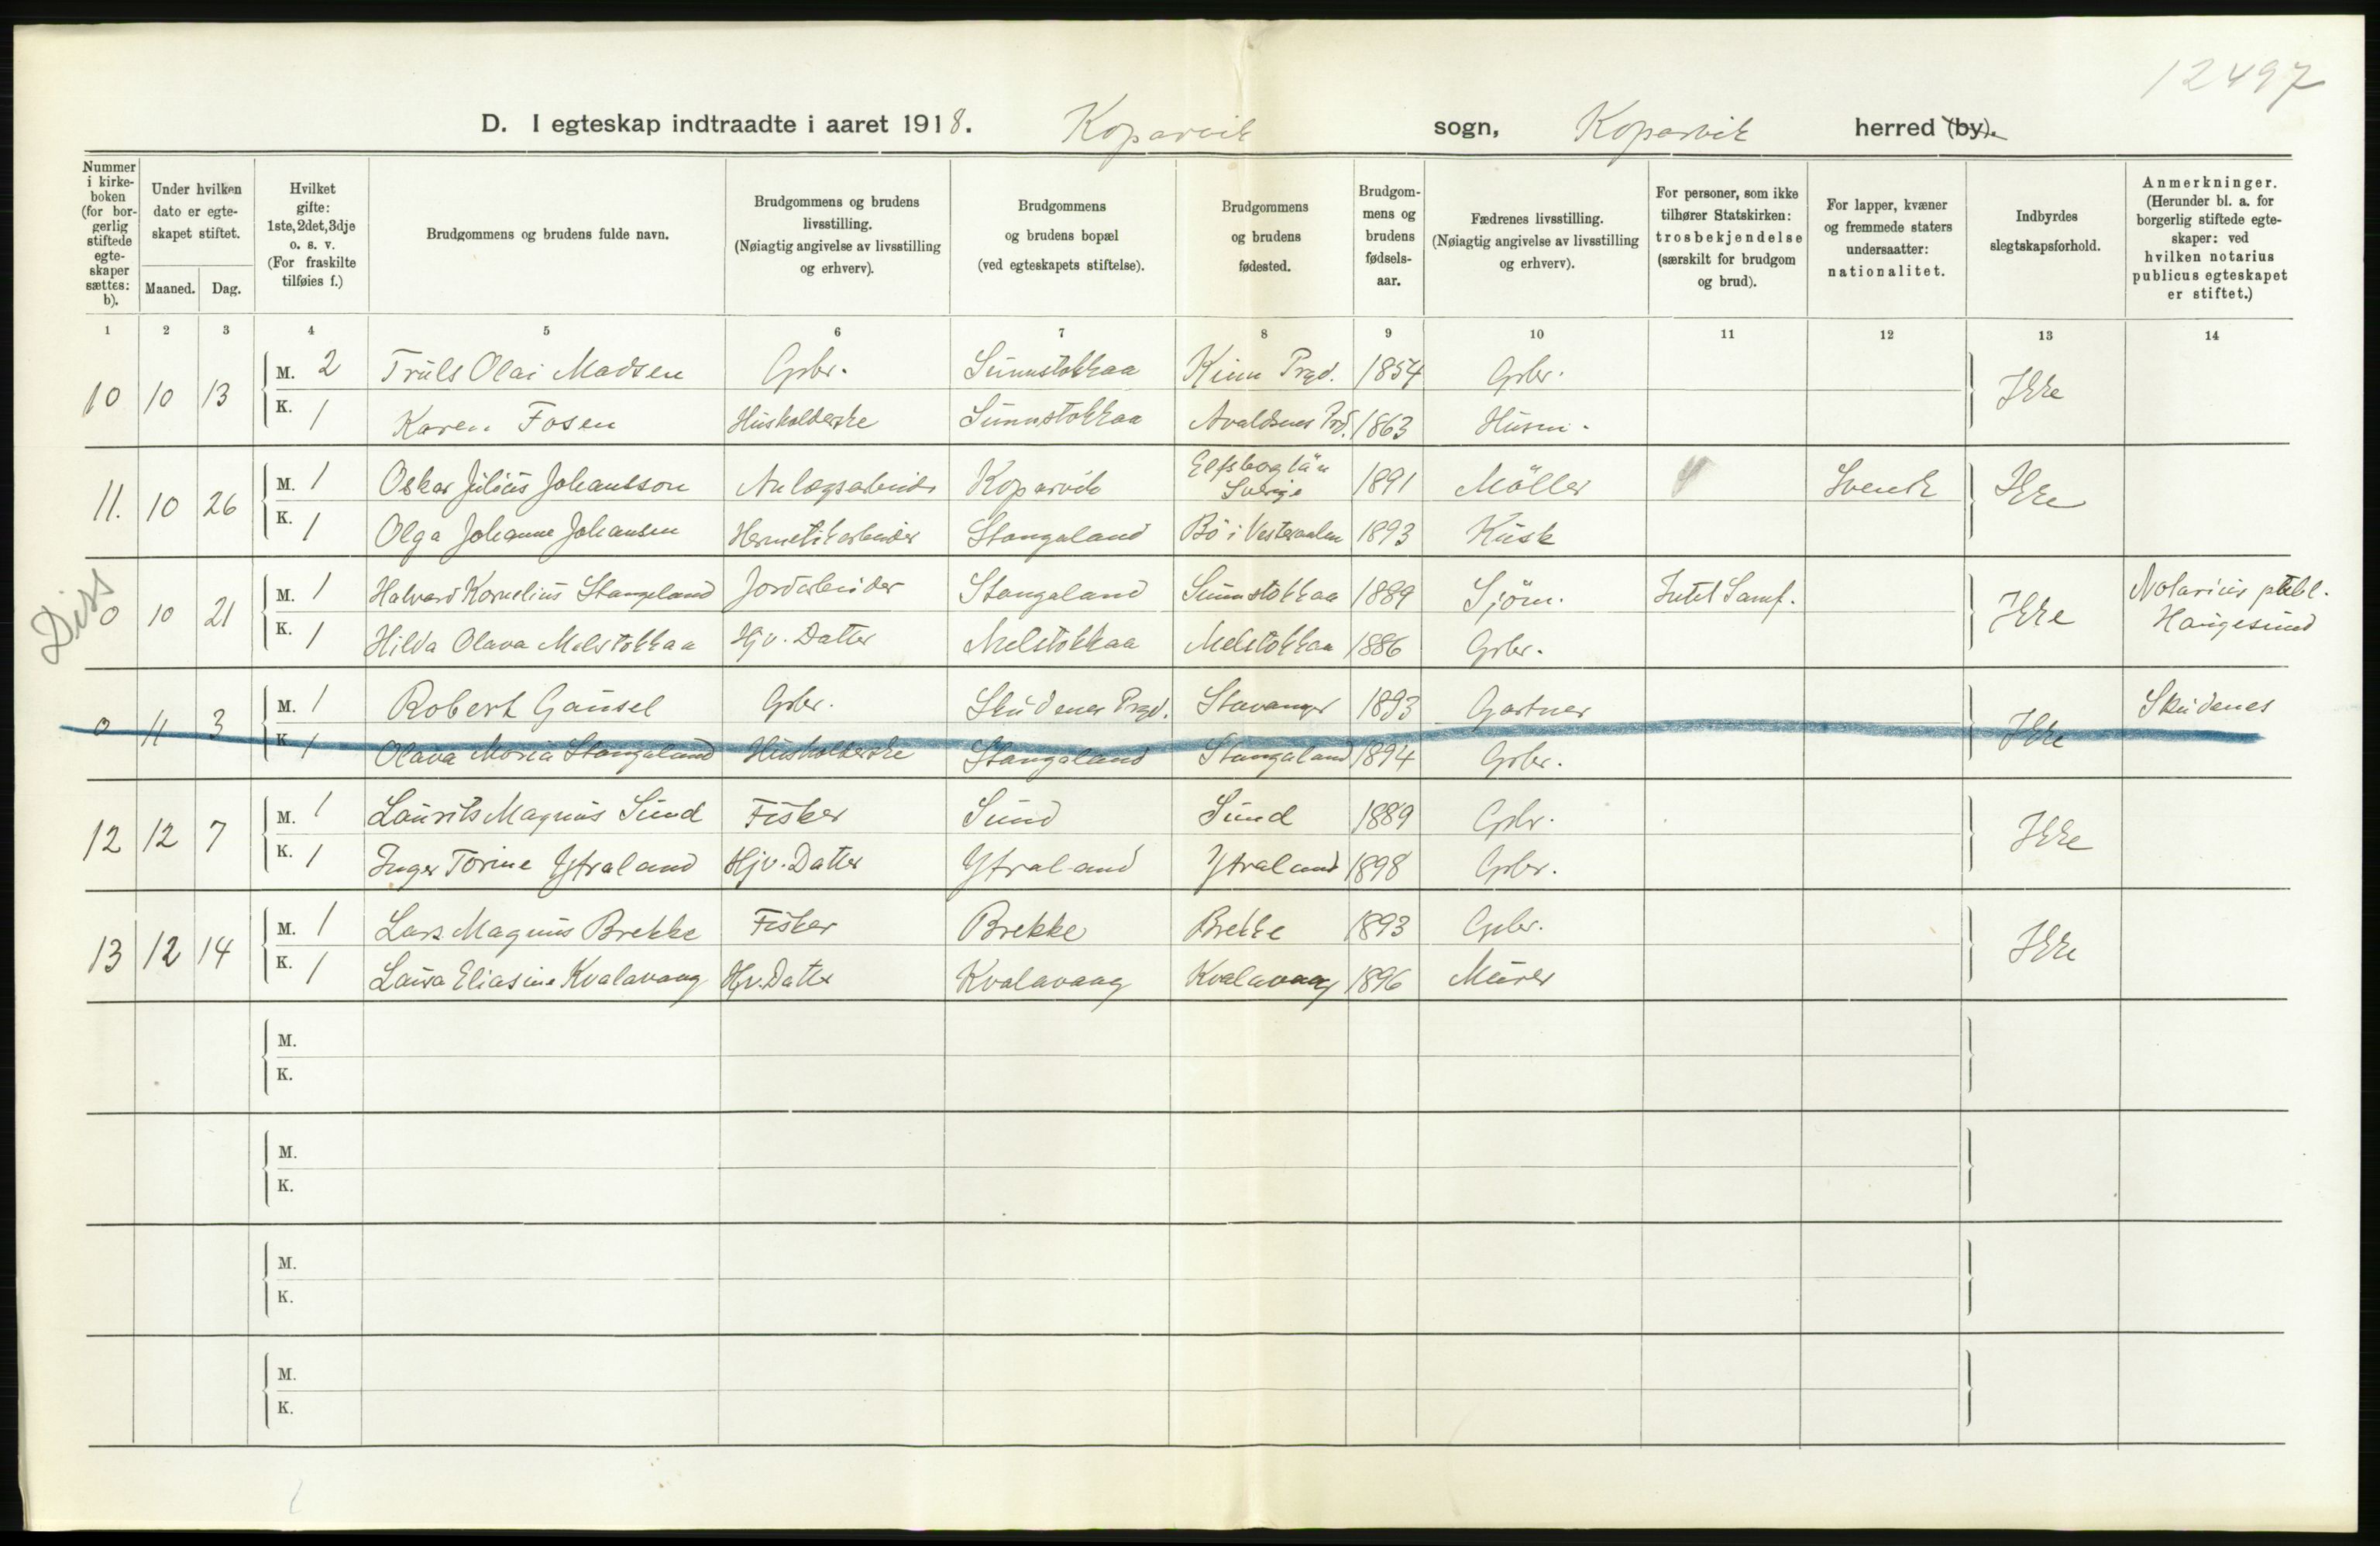 12497
D. I egteskap indtraadte i aaret 1918. Kopervik sogn, Kopervik herred (by).
Nummer i kirkeboken (for borgerlig stiftede egteskaper sættes: b).
Under hvilken dato er egteskapet stiftet.
Maaned. Dag.
Hvilket gifte: 1ste, 2det, 3dje o. s. v. (For fraskilte tilføies f.)
Brudgommens og brudens fulde navn.
Brudgommens og brudens livsstilling. (Nøiagtig angivelse av livsstilling og erhverv).
Brudgommens og brudens bopæl (ved egteskapets stiftelse).
Brudgommens og brudens fødested.
Brudgommens og brudens fødselsaar.
Fædrenes livsstilling. (Nøiagtig angivelse av livsstilling og erhverv).
For personer, som ikke tilhører Statskirken: trosbekjendelse (særskilt for brudgom og brud).
For lapper, kvæner og fremmede staters undersaatter: nationalitet.
Indbyrdes slegtskapsforhold.
Anmerkninger. (Herunder bl. a. for borgerlig stiftede egteskaper: ved hvilken notarius publicus egteskapet er stiftet.)
1 2 3 4 5 6 7 8 9 10 11 12 13 14
10 10 13 M. 2 Truls Olai Madsen Gbr. Sunnstokkaa Kinn Prgd. 1854 Gbr. Ikke
K. 1 Karen Fosen Husholderske Sunnstokkaa Avaldsnes Prd. 1863 Husm.
11. 10 26 M. 1 Oskar Julius Johansson Anlægsarbeider Kopervik Elfsborg län Sverige 1891 Möller Svensk Ikke
K. 1 Olga Johanne Johansen Hermetikarbeider Stangaland Bö i Vesteraalen 1893 Kusk
Diss
0 10 21 M. 1 Halvard Kornelius Stangeland Jordarbeider Stangaland Sunnstokkaa 1889 Sjöm. Intet Samf. Ikke Notarius publ. Haugesund
K. 1 Hilda Olava Melstokkaa Hjv. Datter Melstokkaa Melstokkaa 1886 Gbr.
0 11 3 M. 1 Robert Gausel Gbr. Skudenes Prgd. Stavanger 1893 Gartner Ikke Skudenes
K. 1 Olava Maria Stangeland Husholderske Stangaland Stangaland 1894 Gbr.
12 12 7 M. 1 Laurits Magnus Sund Fisker Sund Sund 1889 Gbr. Ikke
K. 1 Inger Torine Ystraland Hjv. Datter Ystraland Ystraland 1898 Gbr.
13 12 14 M. 1 Lars Magnus Brekke Fisker Brekke Brekke 1893 Gbr. Ikke
K. 1 Laura Eliasine Kvalavaag Hjv. Datter Kvalavaag Kvalavaag 1896 Murer
M.
K.
M.
K.
M.
K.
M.
K.